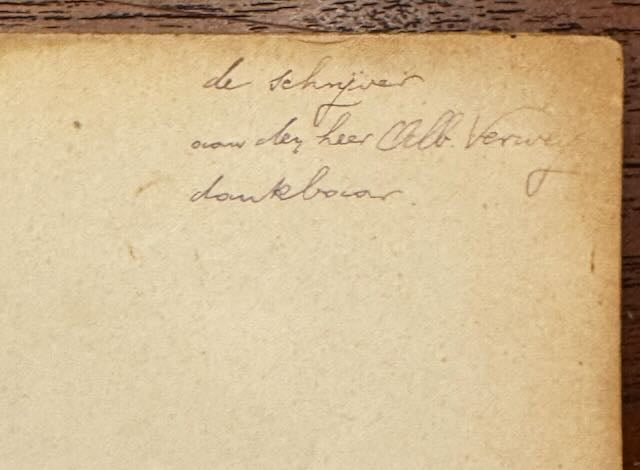 de schrijver
aan den heer Alb. Verwey
dankbaar.